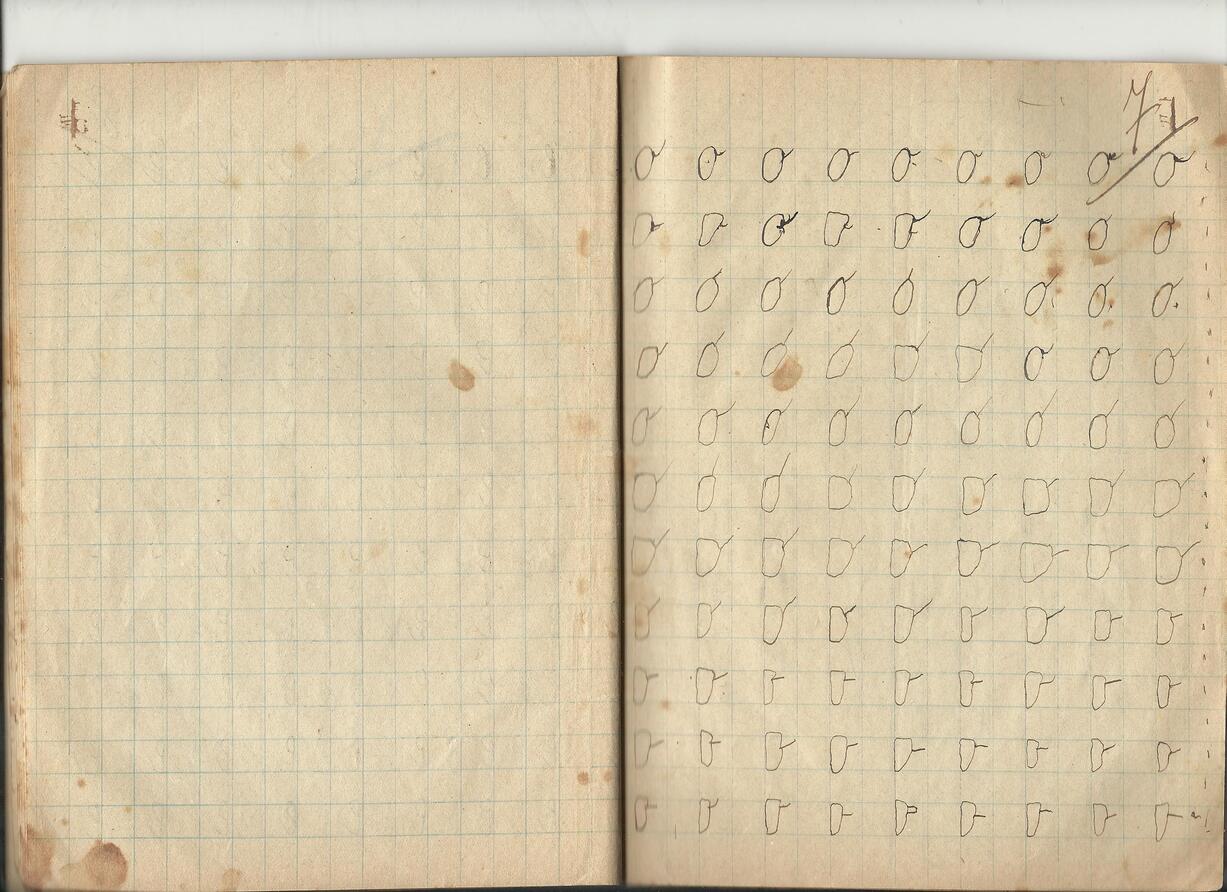 7
o o o o o o o o o
o o o o o o o o o
o o o o o o o o o
o o o o o o o o o
o o o o o o o o o
o o o o o o o o o
o o o o o o o o o
o o o o o o o o o
o o o o o o o o o
o o o o o o o o o
o o o o o o o o o